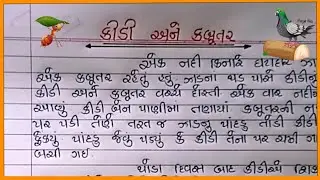 કીડી અને કબૂતર
એક નદી કિનારે ઘટાદાર
એક કબૂતર રહેતું હતું ઝાડના થડ પાસે કીડીનું
કીડી અને કબૂતર વચ્ચે દોસ્તી એક વાર નદીમાં
આવ્યું કીડી બેન પાણીમાં તણાયાં કબૂતરની
પર પડી તેણે તરત જ ઝાડનું પાંદડું તોડી કીડી
ફેંક્યુ પાંદડું જેવું પડ્યું કે કીડી તેના પર ચઢી
બચી ગઇ.
થોડા દિવસ બાદ કીડીએ